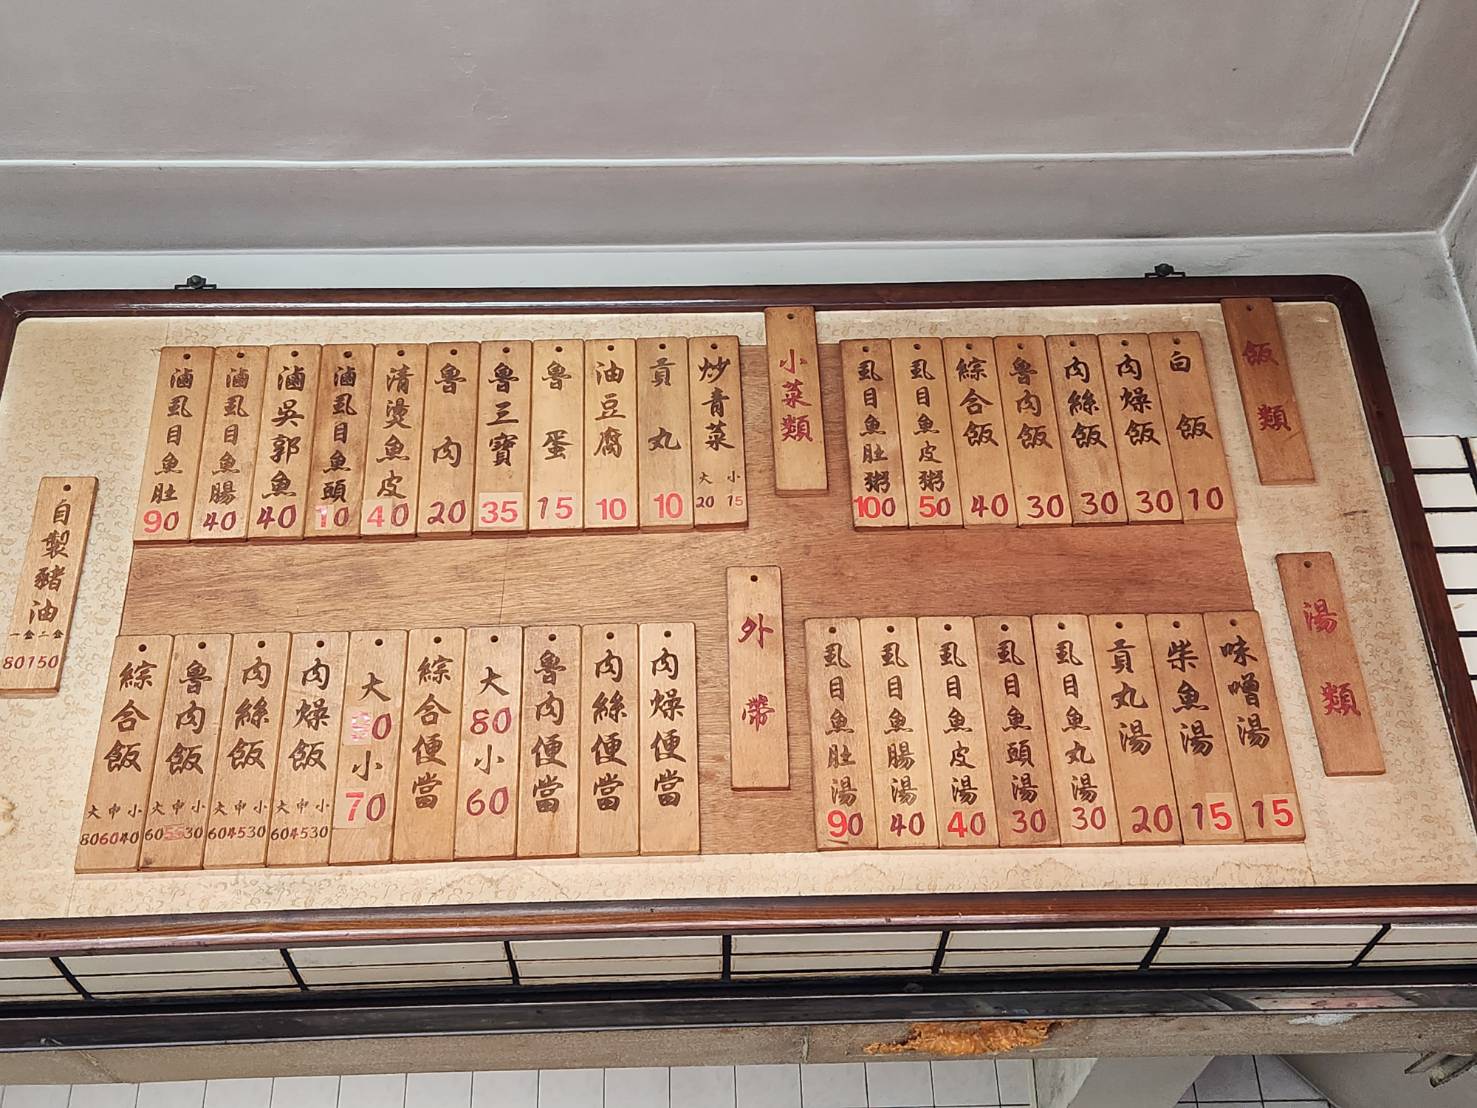 飯類
白飯 10
肉燥飯 30
肉絲飯 30
魯肉飯 30
綜合飯 40
虱目魚皮粥 50
虱目魚肚粥 100
小菜類
炒青菜 大 小 20 15
貢丸 10
油豆腐 10
魯蛋 15
魯三寶 35
魯肉 20
清燙魚皮 40
滷虱目魚頭 10
滷吳郭魚 40
滷虱目魚腸 40
滷虱目魚肚 90
湯類
味噌湯 15
柴魚湯 15
貢丸湯 20
虱目魚丸湯 30
虱目魚頭湯 30
虱目魚皮湯 40
虱目魚腸湯 40
虱目魚肚湯 90
外帶
肉燥便當
肉絲便當
魯肉便當
大80小60
綜合便當
大 0小70
肉燥飯 大中小 604530
肉絲飯 大中小 604530
魯肉飯 大中小 605530
綜合飯 大中小 806040
自製豬油
一盒二盒
80150